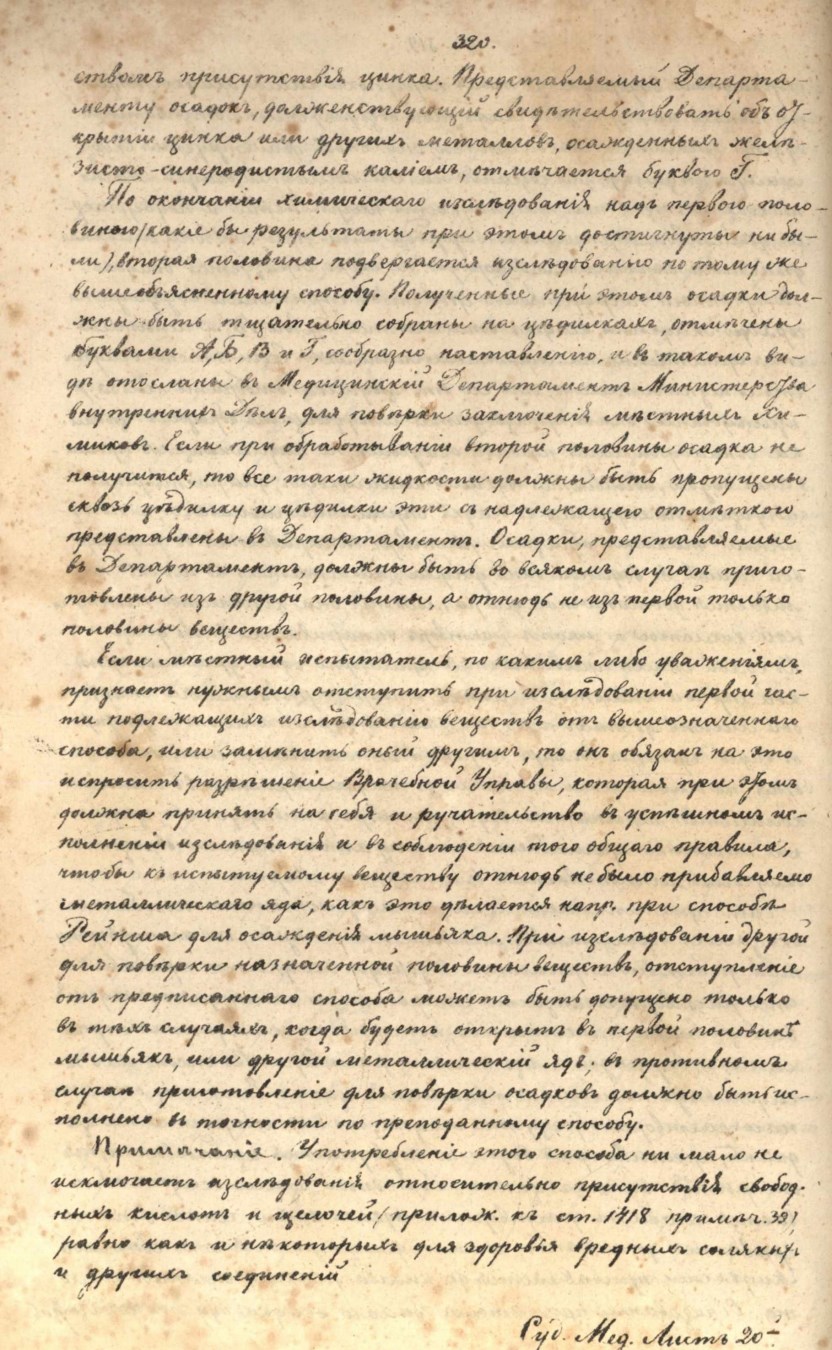 320.
ствомъ присутствія цинка. Представляемый Департа-
менту осадокъ, долженствующій свидѣтельствовать объ от-
крытіи цинка или другихъ металловъ, осажденныхъ желѣ-
зисто-синеродистымъ каліемъ, отмѣчается буквою Г.
По окончаніи химическаго изслѣдованія надъ первого поло-
виною (какіе бы результаты при этомъ достигнуты ни бы-
ли), вторая половина подвергается изслѣдованію по тому же
вышеобъясненному способу. Полученные при этомъ осадки дол-
жны быть тщательно собраны на цѣдилкахъ, отмѣчены
буквами А, Б, В и Г, сообразно наставленію, и въ такомъ ви-
дѣ отосланы въ Медицинскій Департаментъ Министерства
внутреннихъ Дѣлъ, для повѣрки заключенія мѣстныхъ хи-
миковъ. Если при обработываніи второй половины осадка не
получится, то все таки жидкости должны быть пропущены
сквозь цѣдилку и цѣдилки эти съ надлежащею отмѣткою
представлены въ Департаментъ. Осадки, представляемые
въ Департаментъ, должны быть во всякомъ случаѣ приго-
товлены изъ другой половины, а отнюдь не изъ первой только
половины веществъ.
Если мѣстный испытатель, по какимъ либо уваженіямъ,
признаетъ нужнымъ отступить при изслѣдованіи первой час-
ти подлежащихъ изслѣдованію веществъ отъ вышеозначеннаго
способа, или замѣнить оный другимъ, то онъ обязанъ на это
испросить разрѣшеніе Врачебной Управы, которая при этомъ
должна принять на себя и ручательство въ успѣшномъ ис-
полненіи изслѣдованія и въ соблюденіи того общаго правила,
чтобы къ испытуемому веществу отнюдь не было прибавляемо
металлическаго яда, какъ это дѣлается напр. при способѣ
Рейнша для осажденія мышьяка. При изслѣдованіи другой
для повѣрки назначенной половины веществъ, отступленіе
отъ предписаннаго способа можетъ быть допущено только
въ тѣхъ случаяхъ, когда будетъ открытъ въ первой половинѣ
мышьякъ, или другой металлическій ядъ; въ противномъ
случаѣ приготовленіе для повѣрки осадковъ должно быть ис-
полнено въ точности по преподанному способу.
Примѣчаніе. Употребленіе этого способа ни мало не
исключаетъ изслѣдованія относительно присутствія свобод-
ныхъ кислотъ и щелочей (прилож. къ ст. 1418 примѣч. 39)
равно какъ и нѣкоторыхъ для здоровья вредныхъ соляныхъ
и другихъ соединеній
Суд. Мед. Листъ 20й